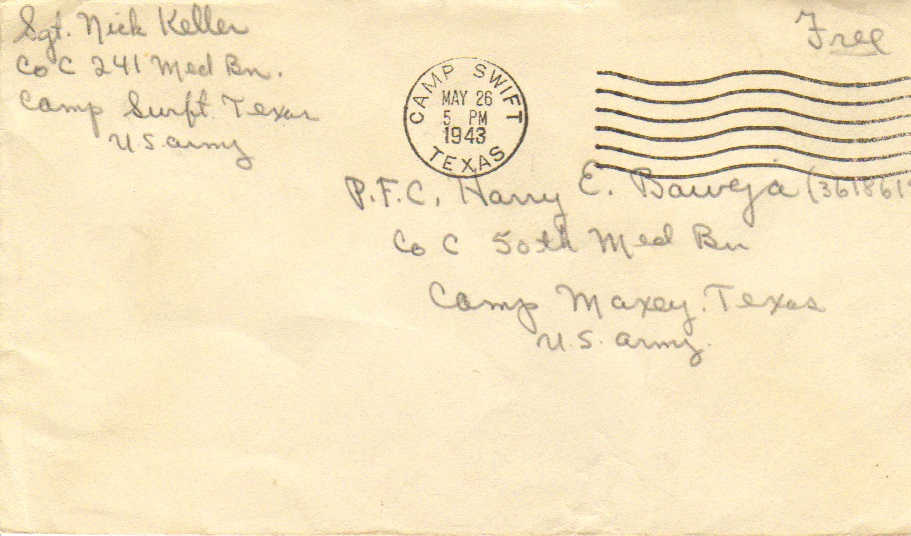 Sgt. Nick Keller
Co C 241 Med Bn.
Camp Swift. Texas
U S army
Free
CAMP SWIFT
MAY 26
5 PM
1943
TEXAS
P.F.C. Harry E. Baweja (361861
Co C 50th Med Bn
Camp Maxey. Texas
U.S. army.